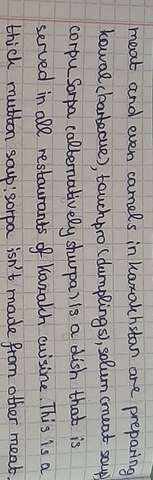 meat and even camels in Kazakhstan are preparing
kaval (barbecue), tauchpro (dumplings), salum (meat soup)
corpu Sorpa (alternatively shurpa) is a dish that is
served in all restaurants of Kazakh cuisine. This is a
thick mutton soup; sorpa isn't made from other meat.